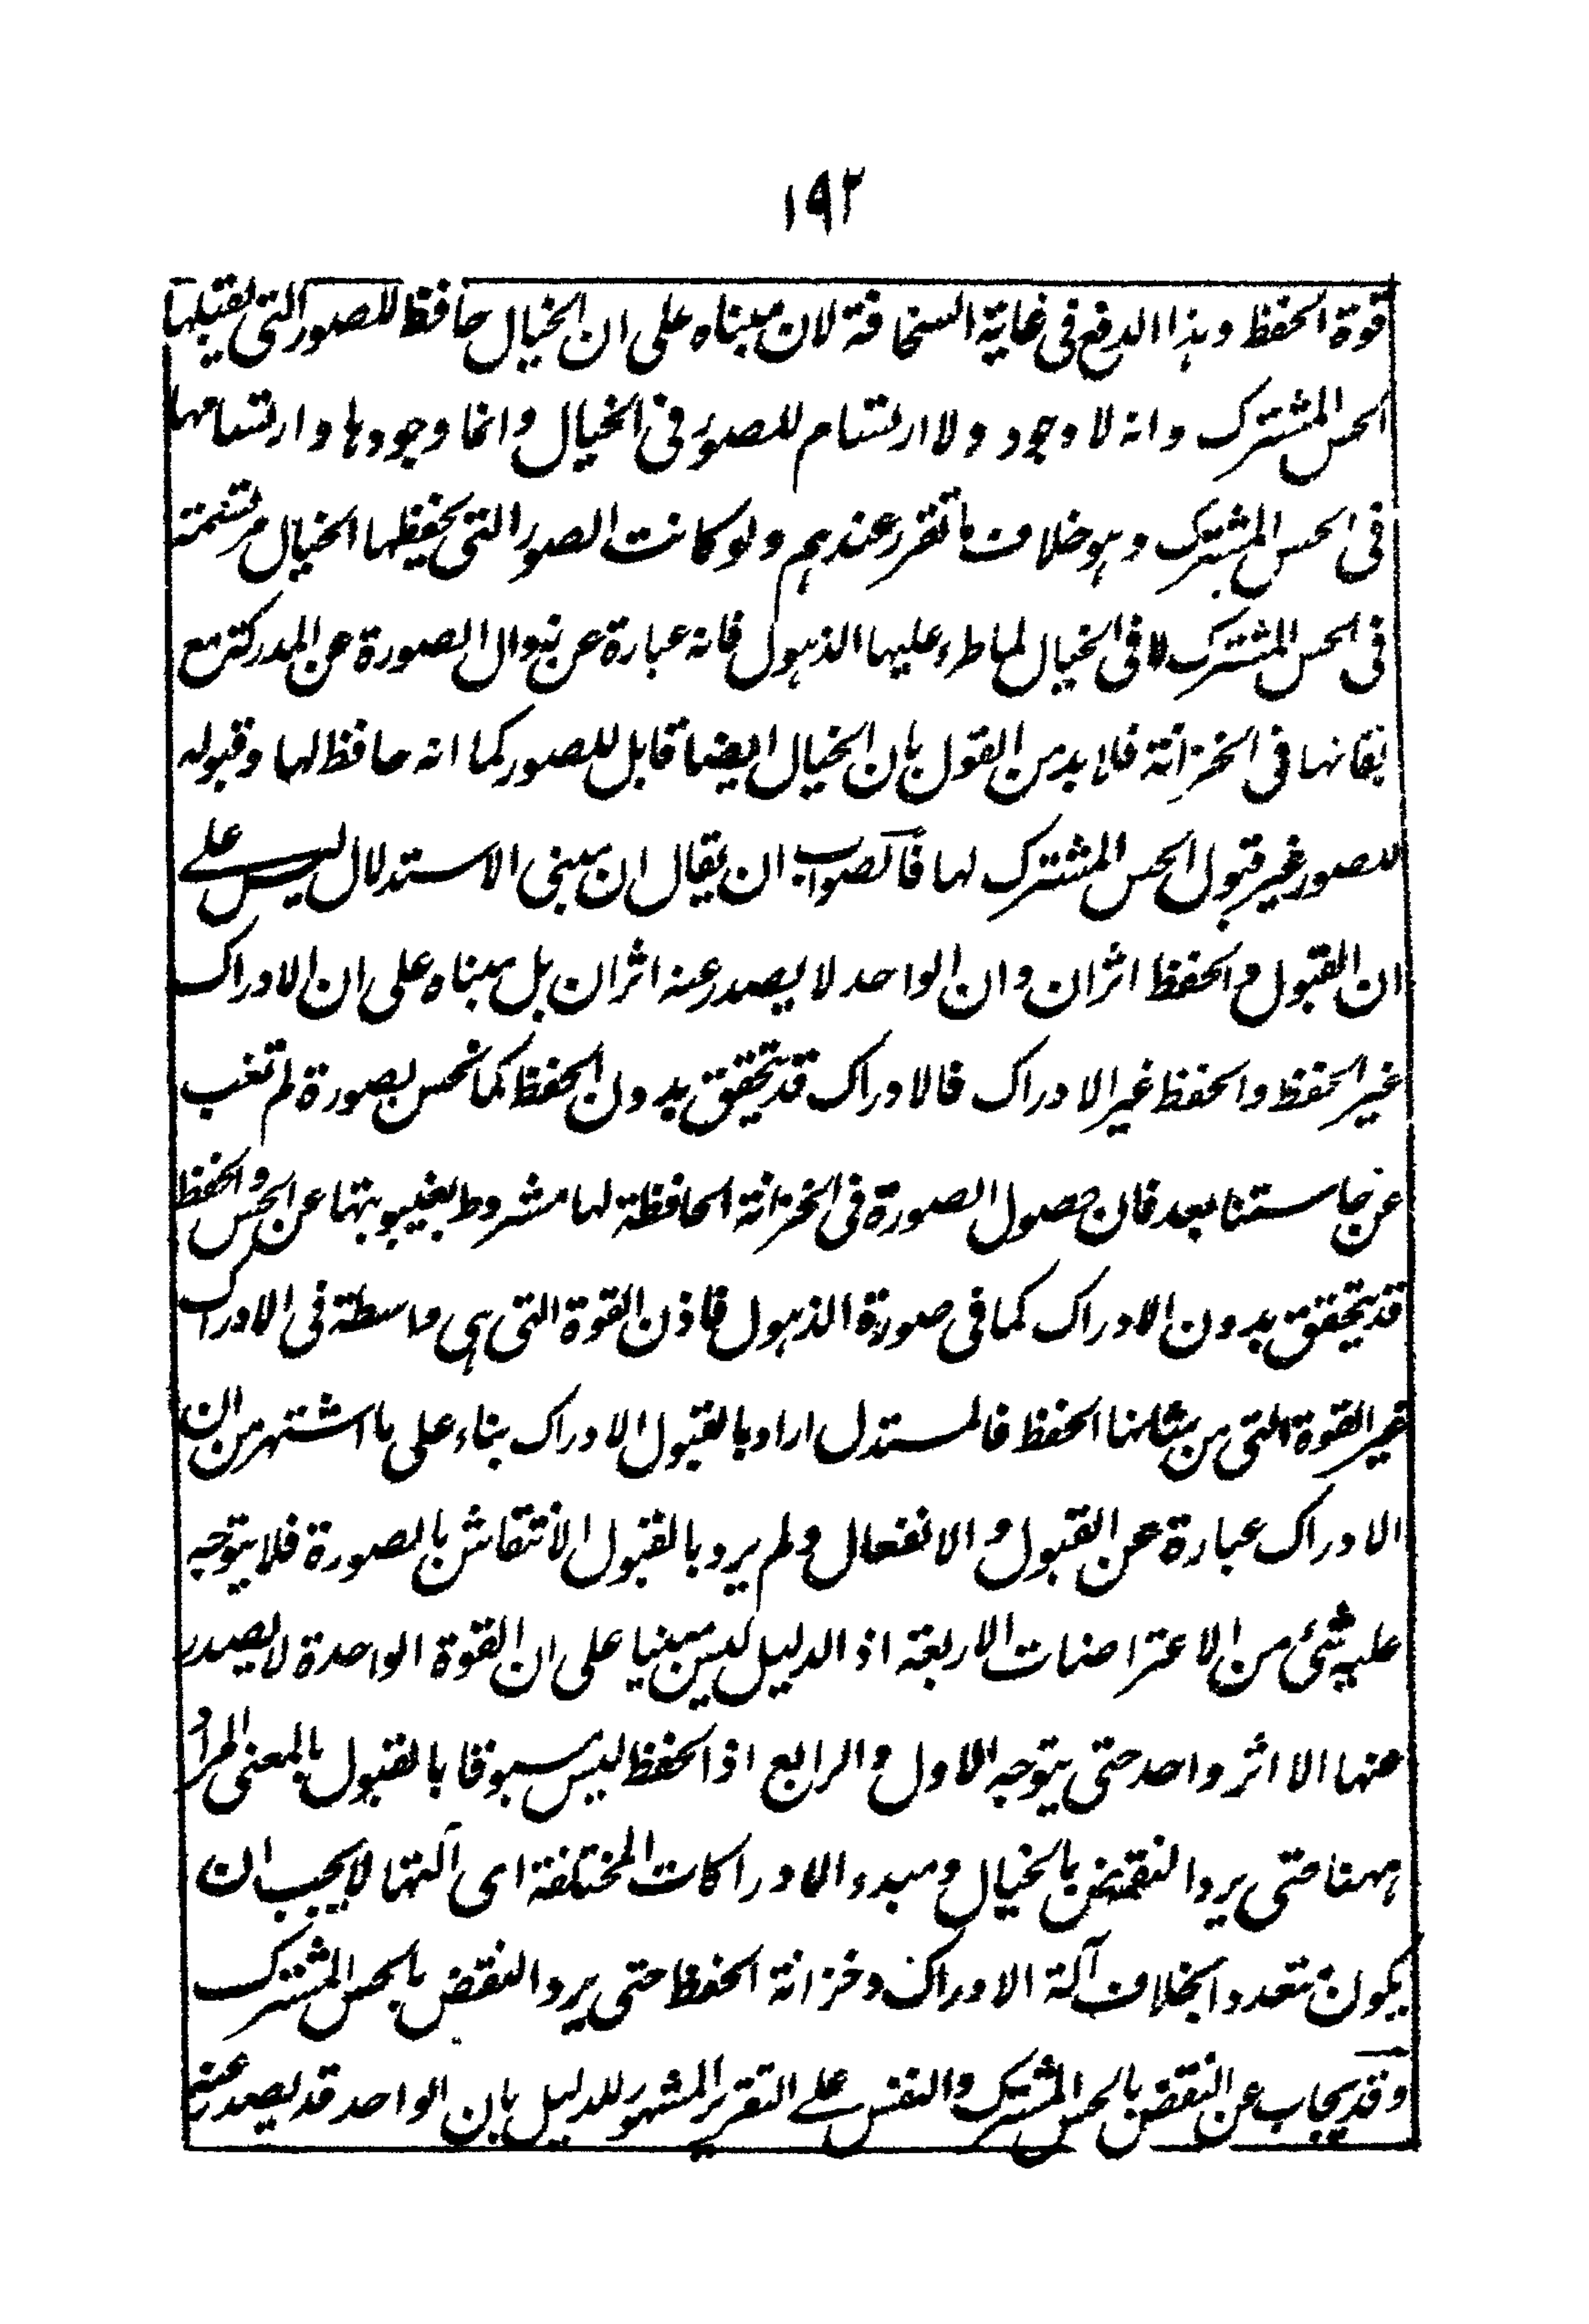 ١٩٢
قوة الحفظ وهذا الدفع فى غاية السخافة لان مبناه على ان الخيال حافظ للصور التى يقبلها
الحس المشترك وانه لا وجود ولا ارتسام للصور فى الخيال وانما وجودها وارتسامها
فى الحس المشترك وهو خلاف ما تقرر عندهم ولو كانت الصور التى يحفظها الخيال مرتسمة
فى الحس المشترك لا فى الخيال لما طرء عليها الذهول فانه عبارة عن زوال الصورة عن المدركة مع
بقائها فى الخزانة فلا بد من القول بان الخيال ايضا قابل للصور كما انه حافظ لها وقبوله
للصور غير قبول الحس المشترك لها فالصواب ان يقال ان مبنى الاستدلال ليس على
ان القبول والحفظ اثران وان الواحد لا يصدر عنه اثران بل مبناه على ان الادراك
غير الحفظ والحفظ غير الادراك فالادراك قد يتحقق بدون الحفظ كما نحس بصورة لم تغب
عن حاستنا بعد فان حصول الصورة فى الخزانة الحافظة لها مشروط بغيبوبتها عن الحس والحفظ
قد يتحقق بدون الادراك كما فى صورة الذهول فاذن القوة التى هى واسطة فى الادراك
غير القوة التى من شانها الحفظ فالمستدل اراد بالقبول الادراك بناء على ما اشتهر من ان
الادراك عبارة عن القبول والانفعال ولم يرد بالقبول الانتقاش بالصورة فلا يتوجه
عليه شئ من الاعتراضات الاربعة اذ الدليل ليس مبنيا على ان القوة الواحدة لا يصدر
عنها الا اثر واحد حتى يتوجه الاول والرابع اذ الحفظ ليس مسبوقا بالقبول بالمعنى المراد
ههنا حتى يرد النقض بالخيال ومبدء الادراكات المختلفة اى آلتها لا يجب ان
يكون متعددا بخلاف آلة الادراك وخزانة الحفظ حتى يرد النقض بالحس المشترك
وقد يجاب عن النقض بالحس المشترك والنفس على التقرير المشهور للدليل بان الواحد قد يصدر عنه